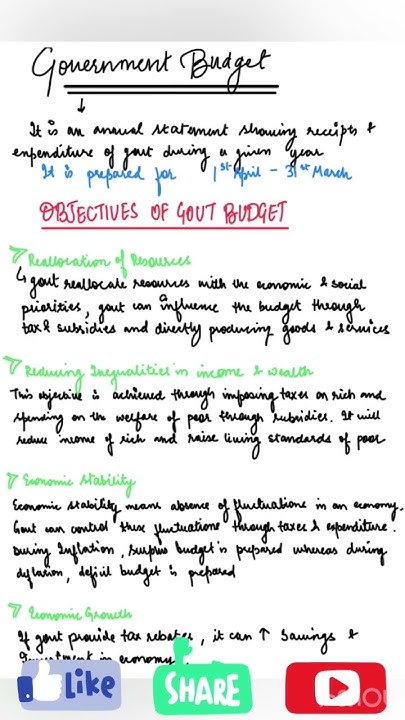 Government Budget
It is an annual statement showing receipts &
expenditure of govt during a given year
It is prepared for 1st April - 31st March
OBJECTIVES OF GOVT BUDGET
Reallocation of Resources
govt reallocate resources with the economic & social
priorities, govt can influence the budget through
tax & subsidies and directly producing goods & services
Reducing Inequalities in income & wealth
This objective is achieved through imposing taxes on rich and
spending on the welfare of poor through subsidies. It will
reduce income of rich and raise living standards of poor
Economic Stability
Economic stability means absence of fluctuations in an economy.
Govt can control these fluctuations through taxes & expenditure.
During Inflation, surplus budget is prepared whereas during
deflation, deficit budget is prepared
Economic Growth
If govt provide tax rebates, it can ↑ savings &
Investment in economy.
Like
SHARE